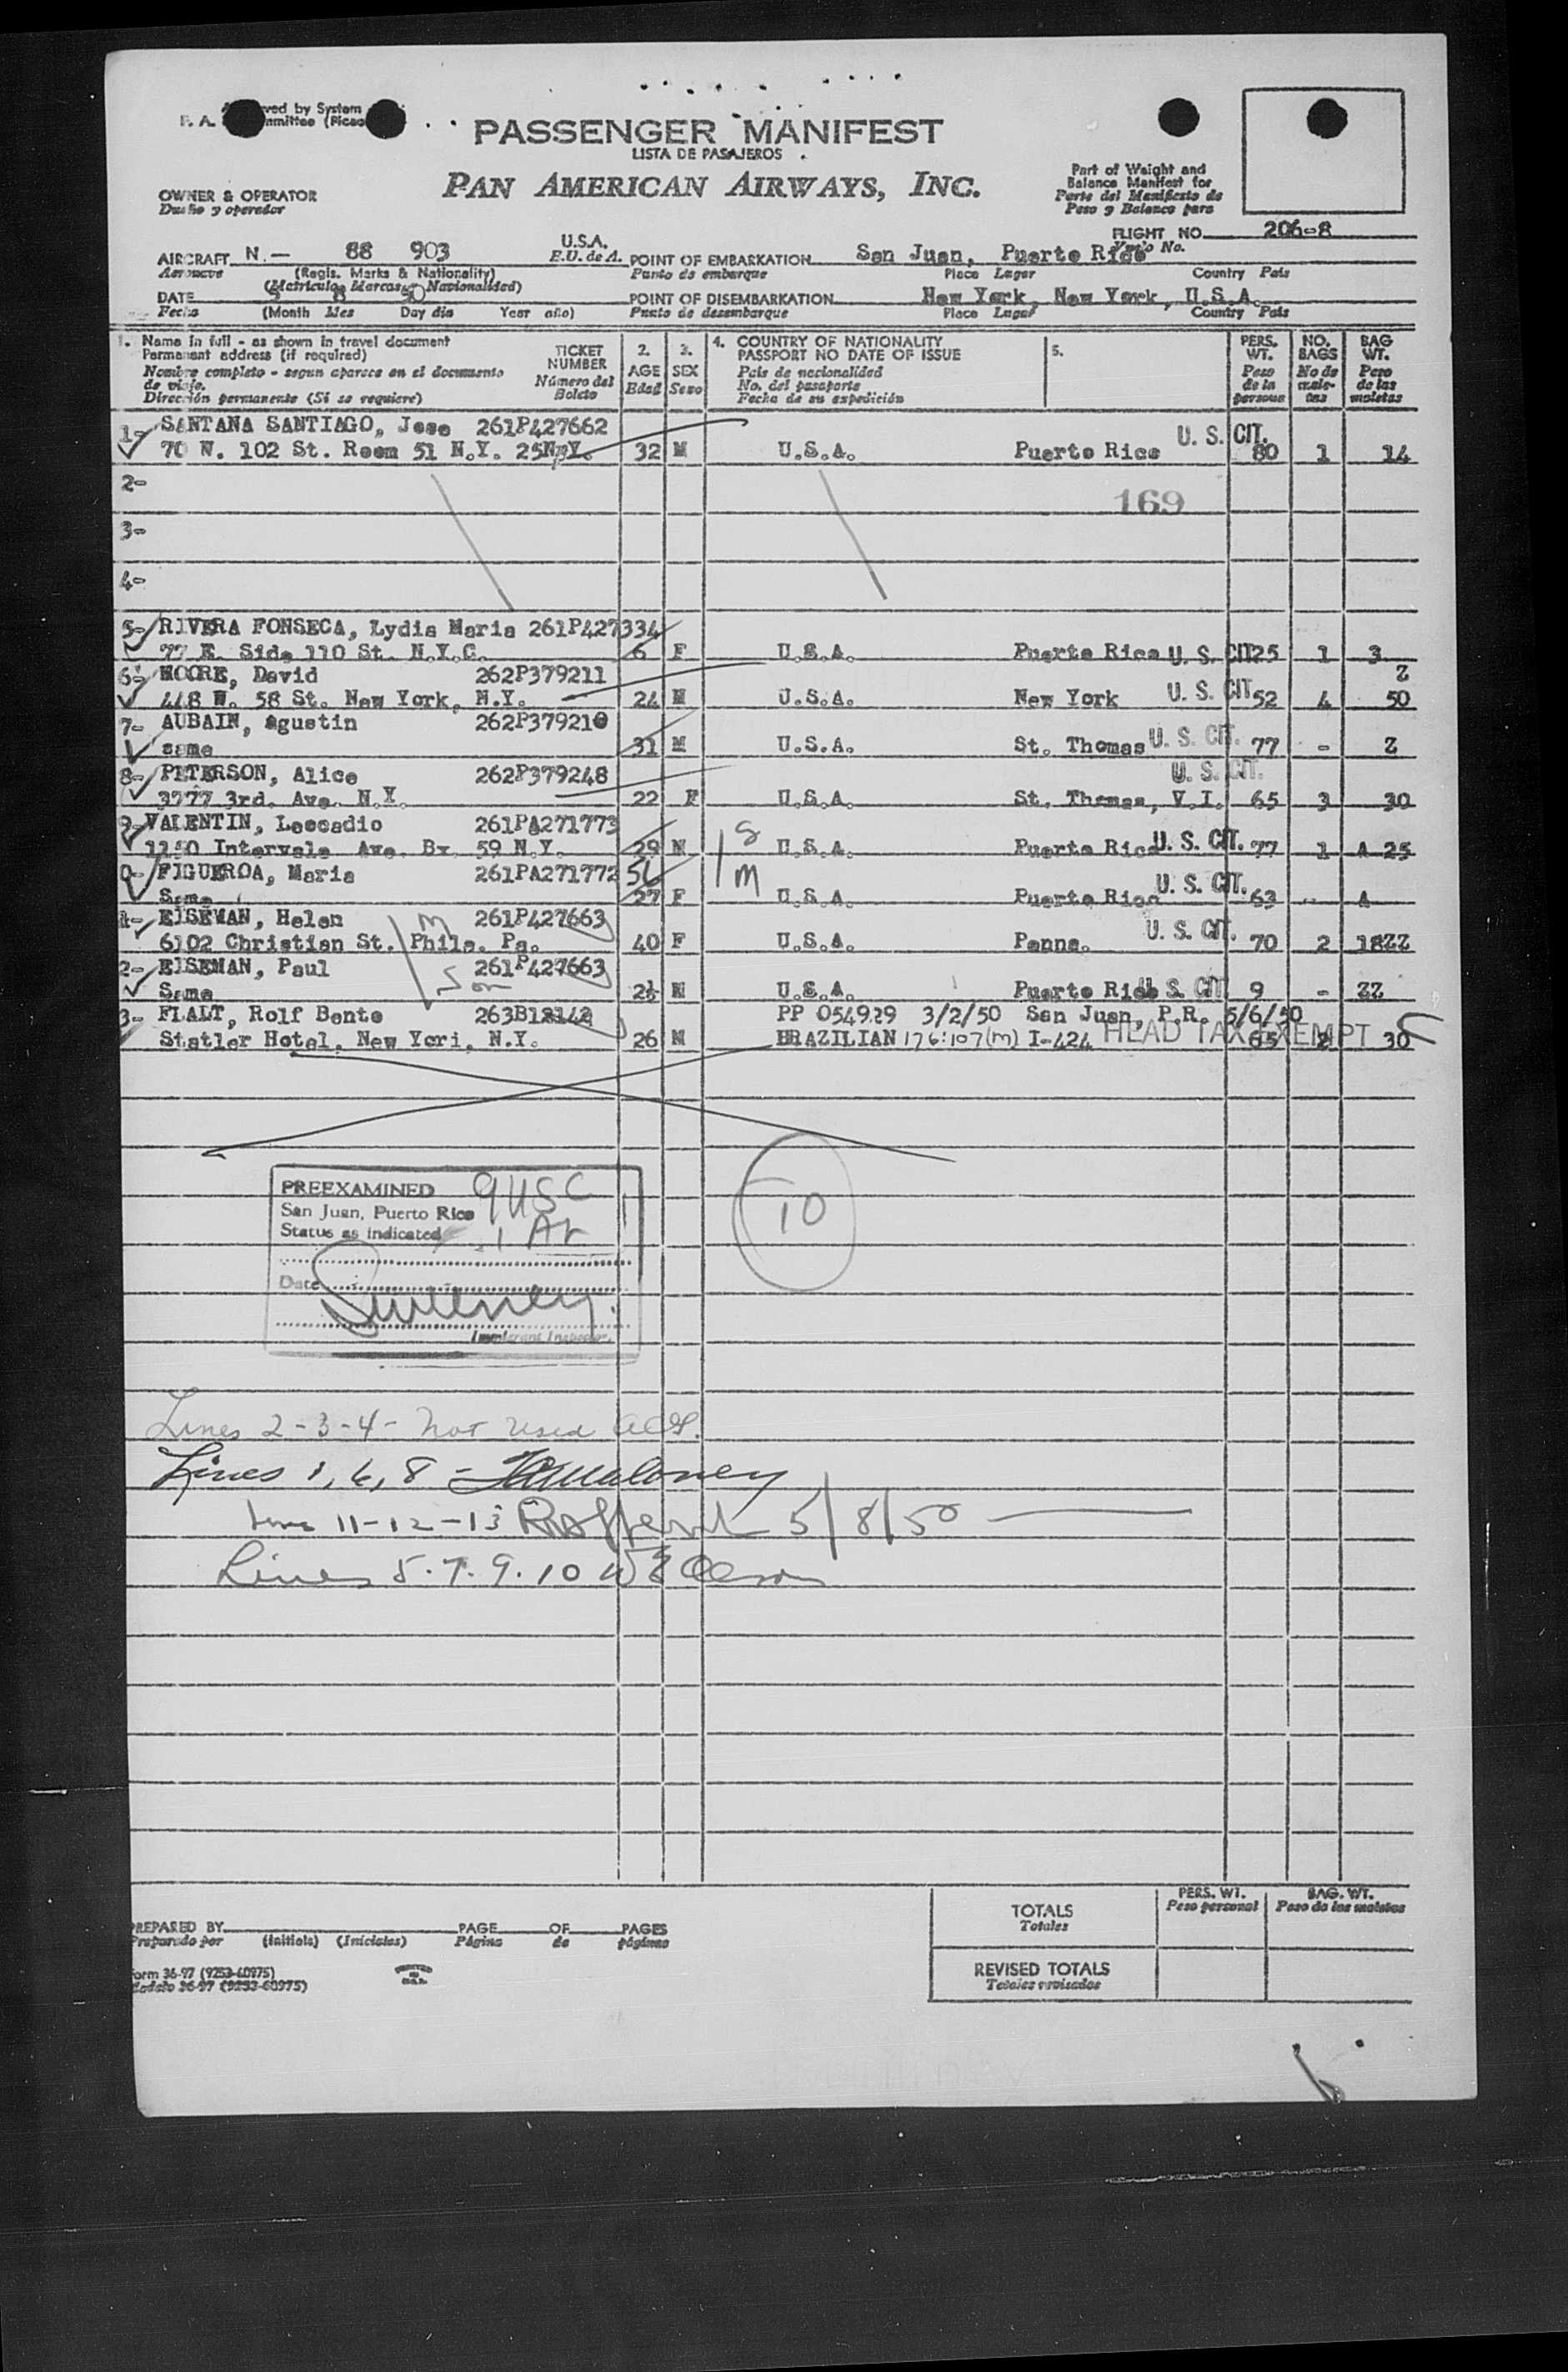 ved by System
F. A. mmittee (Picao
PASSENGER MANIFEST
LISTA DE PASAJEROS
PAN AMERICAN AIRWAYS, INC.
OWNER & OPERATOR
Dueño y operador
Part of Weight and
Balance Manifest for
Parte del Manifiesto de
Peso y Balance para
FLIGHT NO. 206-8
Vuelo No.
AIRCRAFT N.- 88 903 U.S.A.
Aeronave E.U. de A.
(Regis. Marks & Nationality)
(Matriculas Marcas y Nacionalidad)
POINT OF EMBARKATION San Juan, Puerto Rico
Punto de embarque Place Lugar Country Pais
DATE 5 8 50
Fecha (Month Mes Day dia Year año)
POINT OF DISEMBARKATION New York, New York, U.S.A.
Punto de desembarque Place Lugar Country Pais
1. Name in full - as shown in travel document
Permanent address (if required)
Nombre completo - segun aparece en el documento
de viaje.
Dirección permanente (Si se requiere)
TICKET
NUMBER
Número del
Boleto
2.
AGE
Edad
3.
SEX
Sexo
4. COUNTRY OF NATIONALITY
PASSPORT NO DATE OF ISSUE
Pais de nacionalidad
No. del pasaporte
Fecha de su expedición
5.
PERS.
WT.
Peso
de la
persona
NO.
BAGS
No de
male-
tas
BAG
WT.
Peso
de las
maletas
1- SANTANA SANTIAGO, Jose 261P427662
70 W. 102 St. Room 51 N.Y. 25N.Y. 32 M U.S.A. Puerto Rico U. S. CIT. 80 1 14
2-
169
3-
4-
5- RIVERA FONSECA, Lydia Maria 261P427334
77 E. Side 110 St. N.Y.C. 6 F U.S.A. Puerto Rico U. S. CIT 25 1 3
6- MOORE, David 262P379211 Z
448 W. 58 St. New York, N.Y. 24 M U.S.A. New York U. S. CIT 52 4 50
7- AUBAIN, Agustin 262P379210
same 31 M U.S.A. St. Thomas U. S. CIT. 77 - Z
8- PETERSON, Alice 262P379248 U. S. CIT.
3777 3rd. Ave. N.Y. 22 F U.S.A. St. Thomas, V.I. 65 3 30
9- VALENTIN, Leocadio 261PA271773 S
1150 Intervale Ave. Bx. 59 N.Y. 29 M U.S.A. Puerto Rico U. S. CIT. 77 1 A 25
0- FIGUEROA, Maria 261PA271772 56 M
Same 27 F U.S.A. Puerto Rico U. S. CIT. 63 - A
1- EISEMAN, Helen M 261P427663
6102 Christian St. Phila. Pa. 40 F U.S.A. Penna. U. S. CIT. 70 2 18ZZ
2- EISEMAN, Paul Son 261P427663
Same 2½ M U.S.A. Puerto Rico U. S. CIT 9 - ZZ
3- FLALT, Rolf Bento 263B12142 PP 054929 3/2/50 San Juan, P.R. 5/6/50
Statler Hotel, New Yori, N.Y. 26 M BRAZILIAN 176:107(m) I-424 HEAD TAX EXEMPT 65 2 30
PREEXAMINED 9 USC
San Juan, Puerto Rico
Status as indicated 1 AR
Date
Sweeney
Immigrant Inspector.
10
Lines 2-3-4- not used
Lines 1, 6, 8 - Maloney
Line 11-12-13 5/8/50
Lines 5.7.9.10 W E Olson
PREPARED BY
Preparado por (Initials) (Iniciales)
PAGE OF PAGES
Página de páginas
TOTALS
Totales
PERS. WT.
Peso personal
BAG. WT.
Peso de las maletas
REVISED TOTALS
Totales revisados
orm 36-97 (9253-60975)
odelo 36-97 (9253-60975)